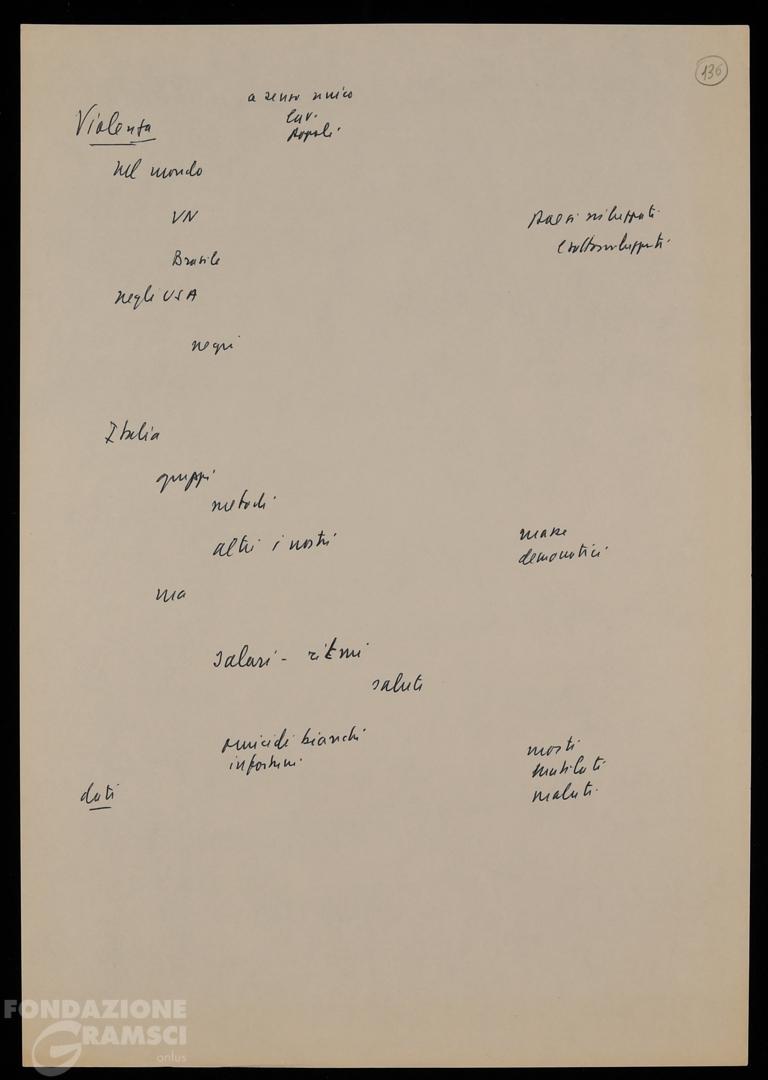 136
a senso unico
Lav.
popoli
Violenza
nel mondo
VN
Paesi sviluppati
e sottosviluppati
Brasile
negli USA
negri
Italia
gruppi
metodi
altri i nostri
masse
democratici
ma
salari - ritmi
salute
omicidi bianchi
infortuni
morti
mutilati
malati
dati
FONDAZIONE
GRAMSCI
onlus